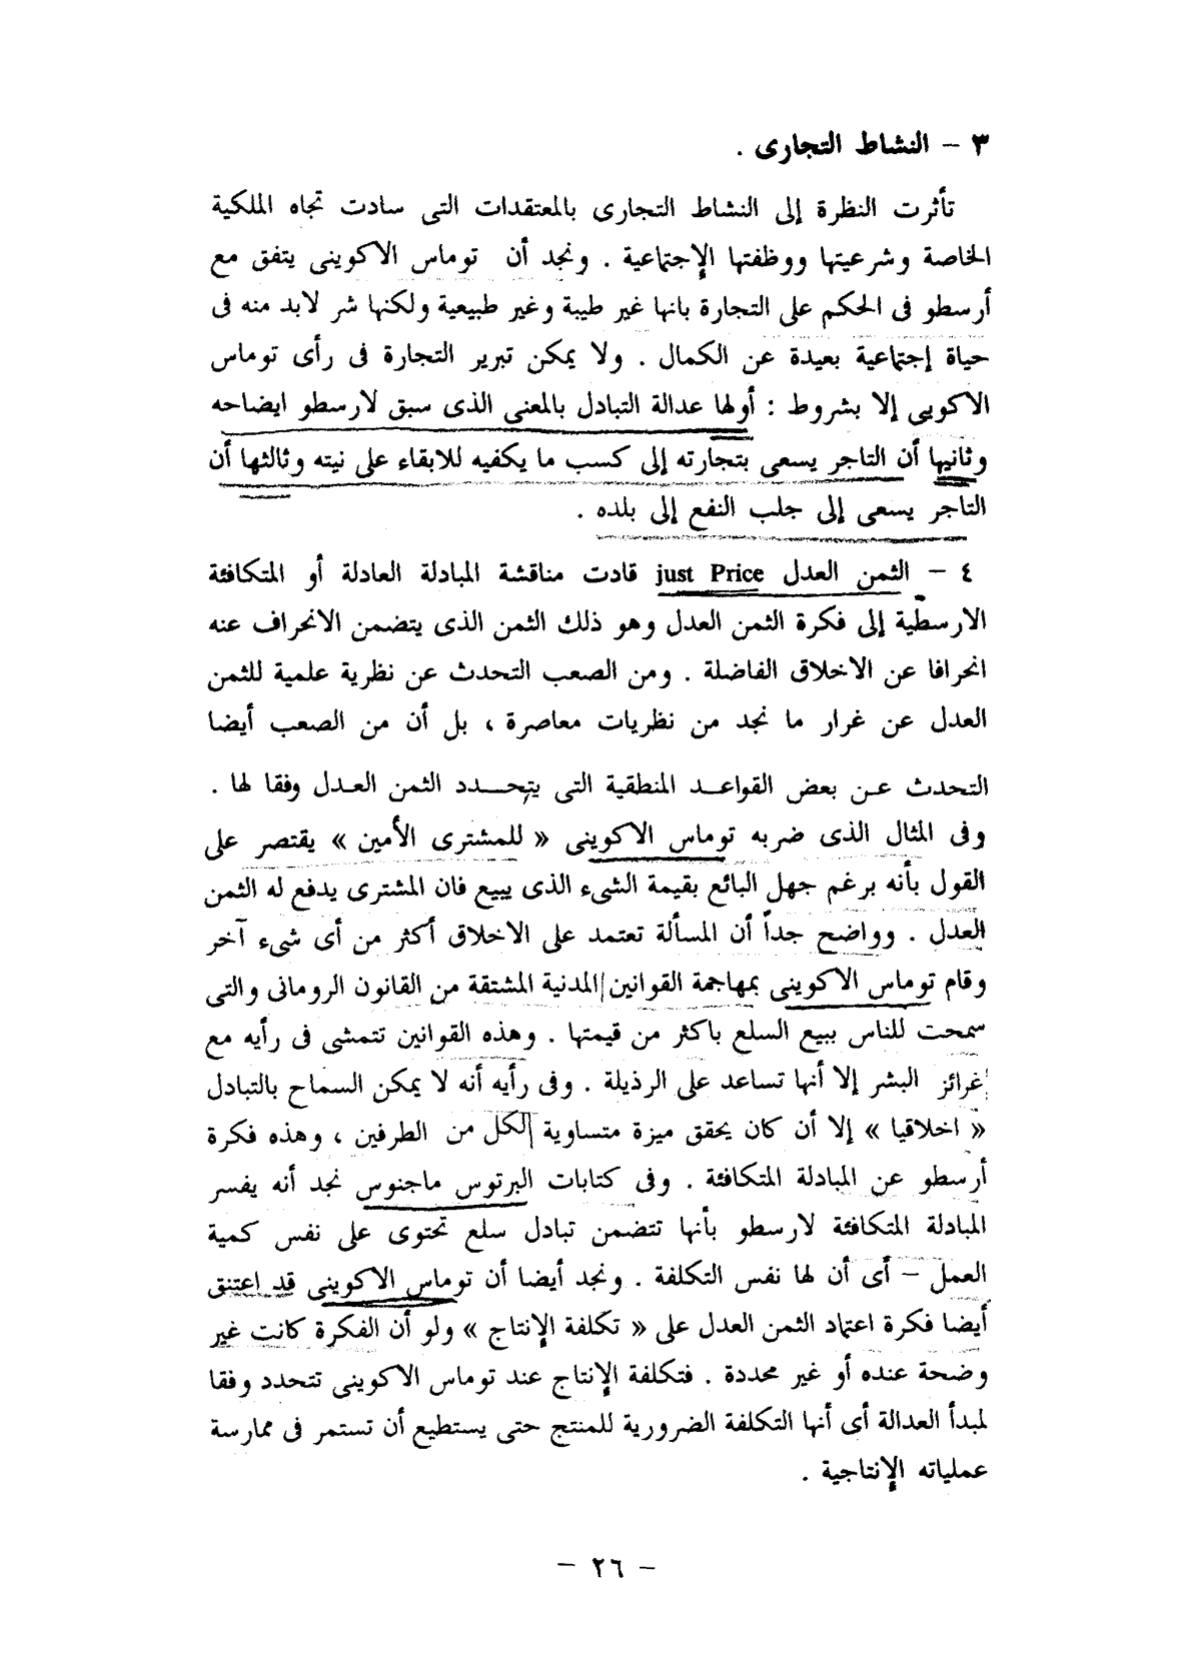 ٣ – النشاط التجارى .
تأثرت النظرة إلى النشاط التجارى بالمعتقدات التى سادت تجاه الملكية
الخاصة وشرعيتها ووظفتها الإجتماعية . ونجد أن توماس الاكوينى يتفق مع
أرسطو فى الحكم على التجارة بانها غير طيبة وغير طبيعية ولكنها شر لابد منه فى
حياة إجتماعية بعيدة عن الكمال . ولا يمكن تبرير التجارة فى رأى توماس
الاكوينى إلا بشروط : أولها عدالة التبادل بالمعنى الذى سبق لارسطو ايضاحه
وثانيها أن التاجر يسعى بتجارته إلى كسب ما يكفيه للابقاء على نيته وثالثها أن
التاجر يسعى إلى جلب النفع إلى بلده .
٤ – الثمن العدل just Price قادت مناقشة المبادلة العادلة أو المتكافئة
الارسطية إلى فكرة الثمن العدل وهو ذلك الثمن الذى يتضمن الانحراف عنه
انحرافا عن الاخلاق الفاضلة . ومن الصعب التحدث عن نظرية علمية للثمن
العدل عن غرار ما نجد من نظريات معاصرة ، بل أن من الصعب أيضا
التحدث عن بعض القواعد المنطقية التى يتحدد الثمن العدل وفقا لها .
وفى المثال الذى ضربه توماس الاكوينى « للمشترى الأمين » يقتصر على
القول بأنه برغم جهل البائع بقيمة الشىء الذى يبيع فان المشترى يدفع له الثمن
العدل . وواضح جداً أن المسألة تعتمد على الاخلاق أكثر من أى شىء آخر
وقام توماس الاكوينى بمهاجمة القوانين المدنية المشتقة من القانون الرومانى والتى
سمحت للناس ببيع السلع باكثر من قيمتها . وهذه القوانين تتمشى فى رأيه مع
غرائز البشر إلا أنها تساعد على الرذيلة . وفى رأيه أنه لا يمكن السماح بالتبادل
« اخلاقيا » إلا أن كان يحقق ميزة متساوية لكل من الطرفين ، وهذه فكرة
أرسطو عن المبادلة المتكافئة . وفى كتابات البرتوس ماجنوس نجد أنه يفسر
المبادلة المتكافئة لارسطو بأنها تتضمن تبادل سلع تحتوى على نفس كمية
العمل – أى أن لها نفس التكلفة . ونجد أيضا أن توماس الاكوينى قد اعتنق
أيضا فكرة اعتماد الثمن العدل على « تكلفة الإنتاج » ولو أن الفكرة كانت غير
وضحة عنده أو غير محددة . فتكلفة الإنتاج عند توماس الاكوينى تتحدد وفقا
لمبدأ العدالة أى أنها التكلفة الضرورية للمنتج حتى يستطيع أن تستمر فى ممارسة
عملياته الإنتاجية .
– ٢٦ –